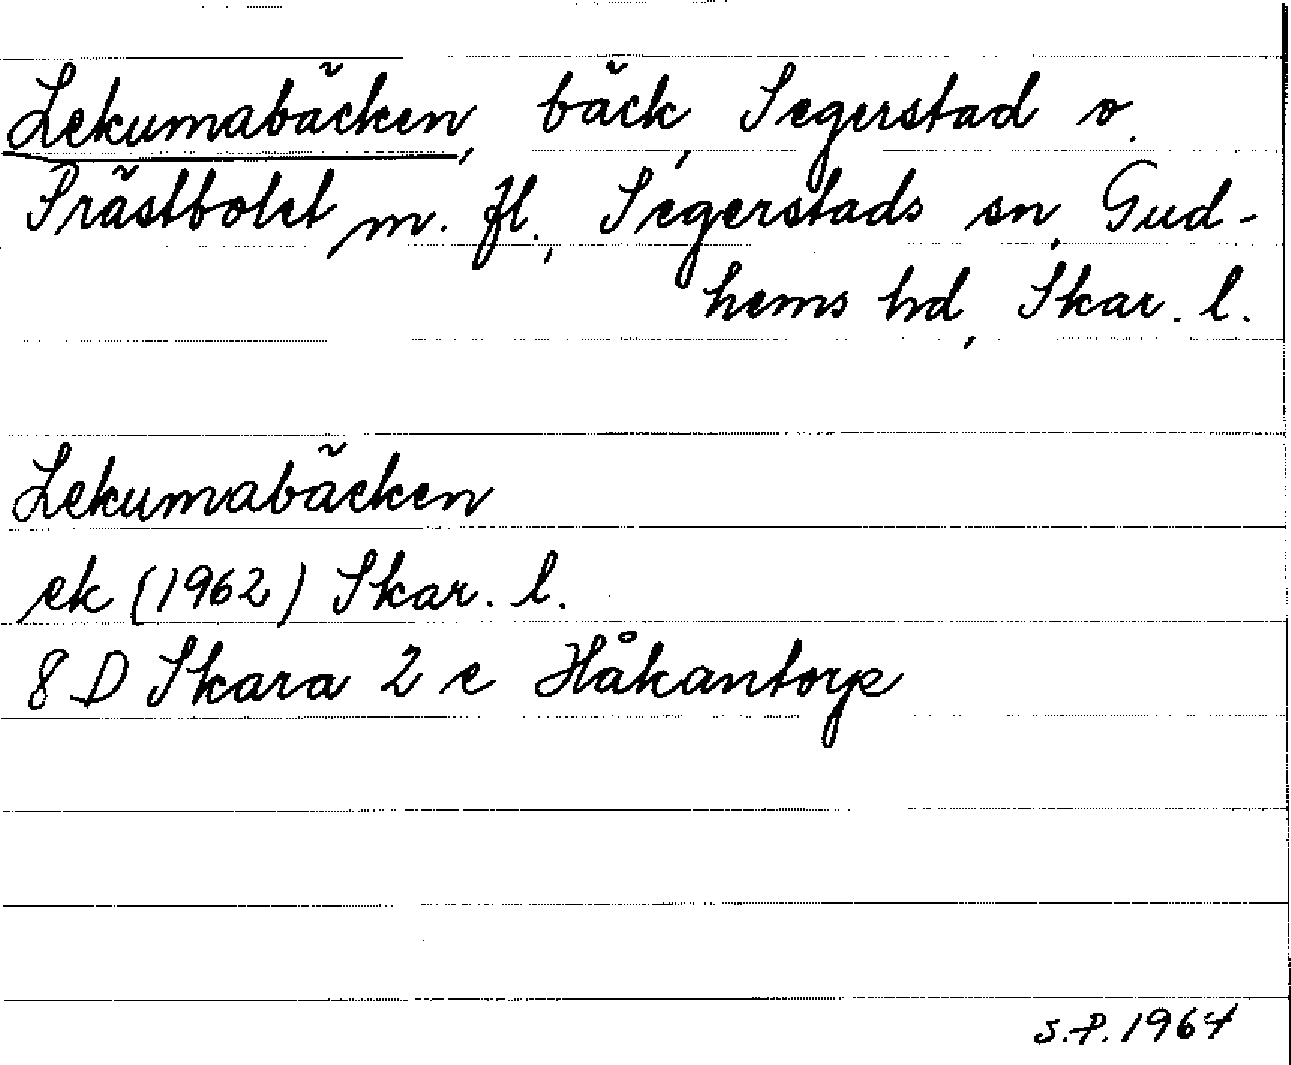 Lekumabäcken, bäck, Segerstad o.
Prästbolet m. fl., Segerstads sn, Gud-
hems hd, Skar. l.
Lekumabäcken
ek (1962) Skar. l.
8 D Skara 2 e Håkantorp
S.P. 1964